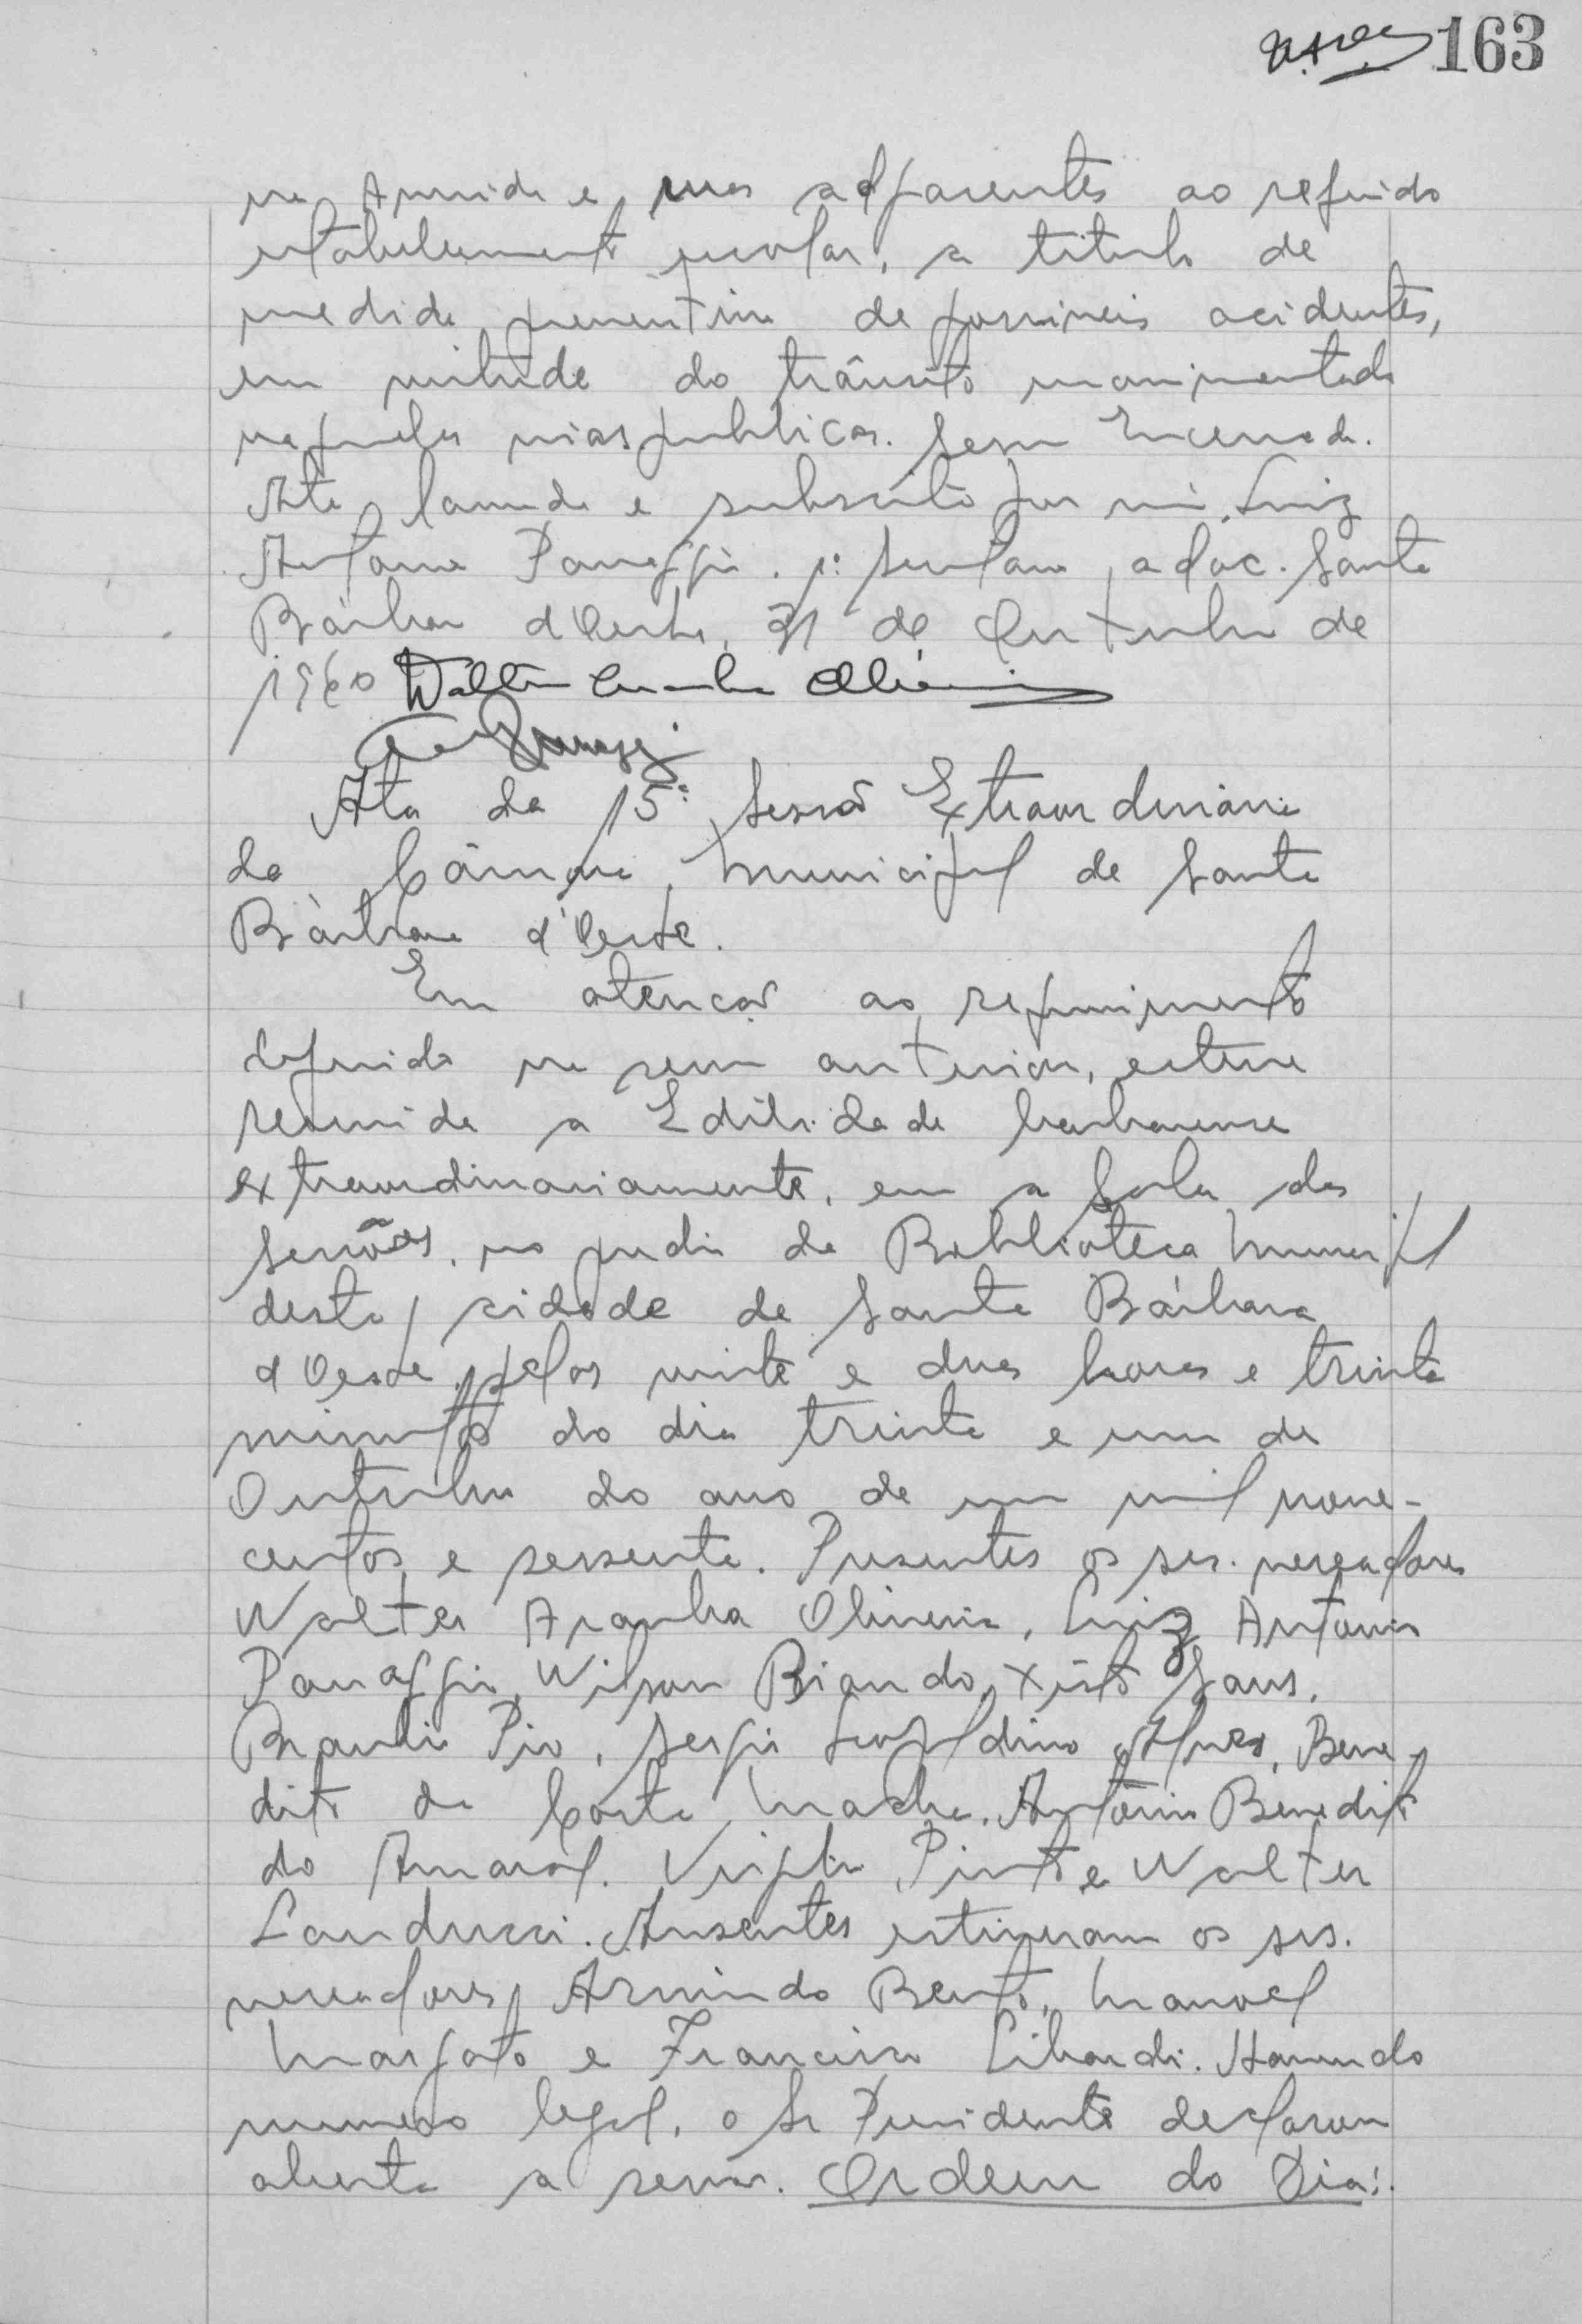 163
na Avenida e ruas adjacentes ao referido
estabelecimento escolar, a titulo de
medida preventiva de possiveis acidentes,
em virtude do trânsito movimentado
naquelas vias publicas. Sessão Encerrada.
Ata lavrada e subscrita por mim, Luiz
Antonio Panaggio. 1º Secretario, ad oc. Santa
Bárbara d'Oeste, 31 de Outubro de
1960 Walter Aranha Oliveira
Ata da 15ª Sessão Extraordinária
da Câmara Municipal de Santa
Bárbara d'Oeste.
Em atenção ao requerimento
deferido na sessão anterior, esteve
reunida a Edilidade barbarense
extraordinariamente, em a Sala das
Sessões, no predio da Biblioteca Municipal
desta cidade de Santa Bárbara
d'Oeste, pelas vinte e duas horas e trinta
minutos do dia trinta e um de
Outubro do ano de um mil nove-
centos e sessenta. Presentes os srs. vereadores
Walter Aranha Oliveira, Luiz Antonio
Panaggio, Wilson Biondo, Xisto Sans,
Braulio Pio, Sergio Leopoldino Alves, Bene-
dito da Costa Machado, Antônio Benedito
do Amaral, Virgilio Pinto e Walter
Landucci. Ausentes estiveram os srs.
vereadores Armindo Bento, Manoel
Margato e Francisco Libardi. Havendo
numero legal, o Sr Presidente declarou
aberta a sessão. Ordem do Dia: